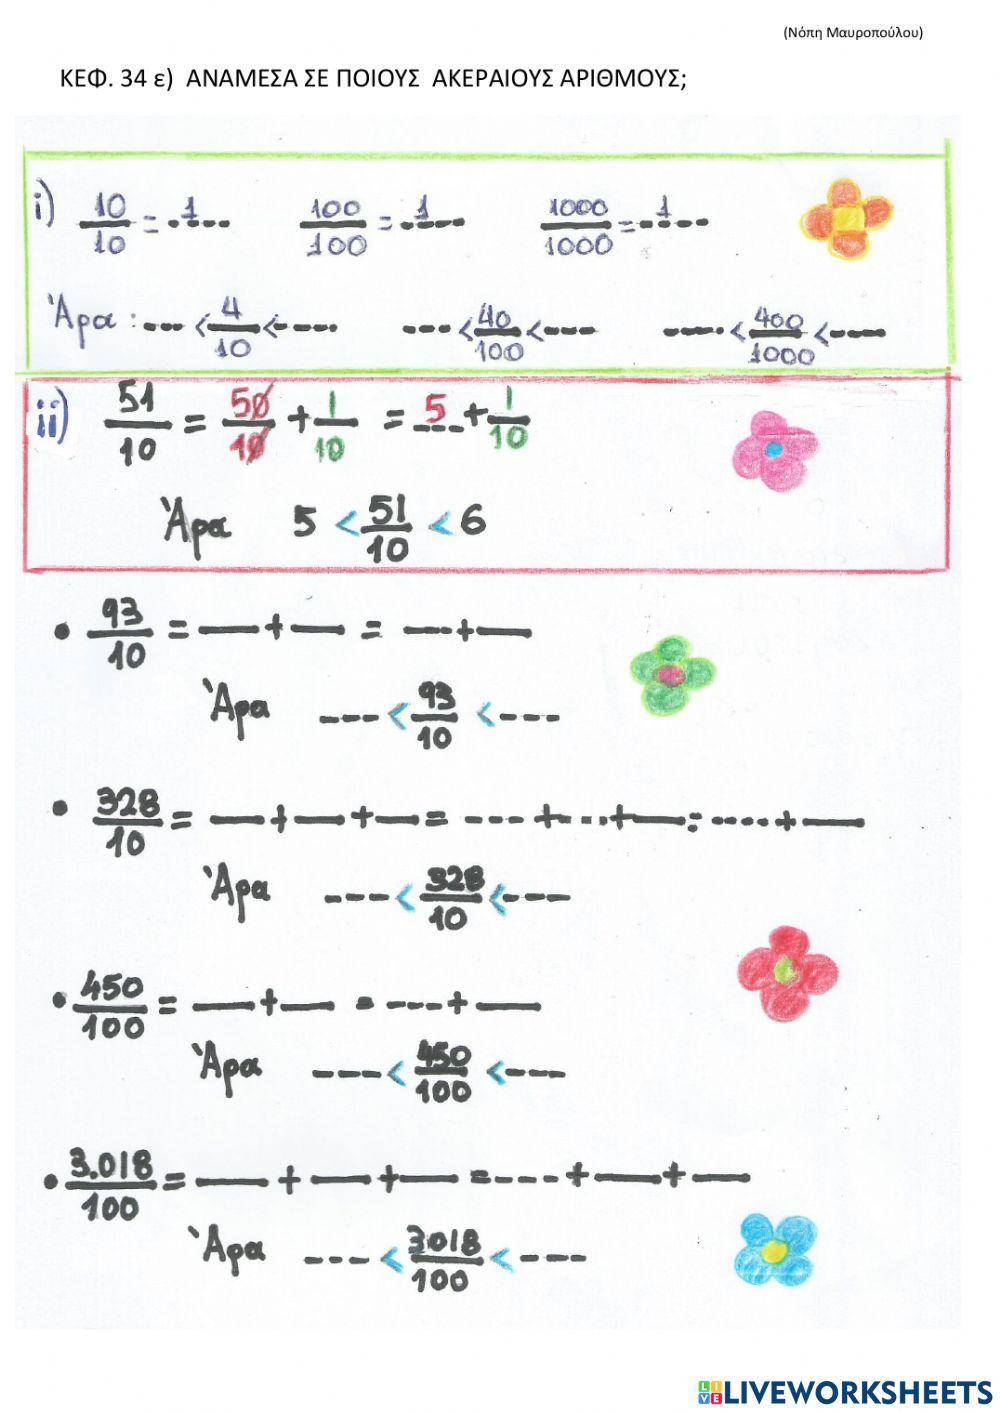 (Νόπη Μαυροπούλου)
ΚΕΦ. 34 ε) ΑΝΑΜΕΣΑ ΣΕ ΠΟΙΟΥΣ ΑΚΕΡΑΙΟΥΣ ΑΡΙΘΜΟΥΣ;
i) 10/10 = 1 100/100 = 1 1000/1000 = 1
Άρα : --- < 4/10 < ---- --- < 40/100 < --- ---- < 400/1000 < ----
ii) 51/10 = 50/10 + 1/10 = 5 + 1/10
Άρα 5 < 51/10 < 6
• 93/10 = __ + __ = --- + __
Άρα --- < 93/10 < ---
• 328/10 = __ + __ + __ = --- + --- + __ = ---- + __
Άρα --- < 328/10 < ---
• 450/100 = __ + __ = --- + __
Άρα --- < 450/100 < ---
• 3.018/100 = __ + __ + __ = --- + __ + __
Άρα --- < 3018/100 < ---
LIVE LIVEWORKSHEETS